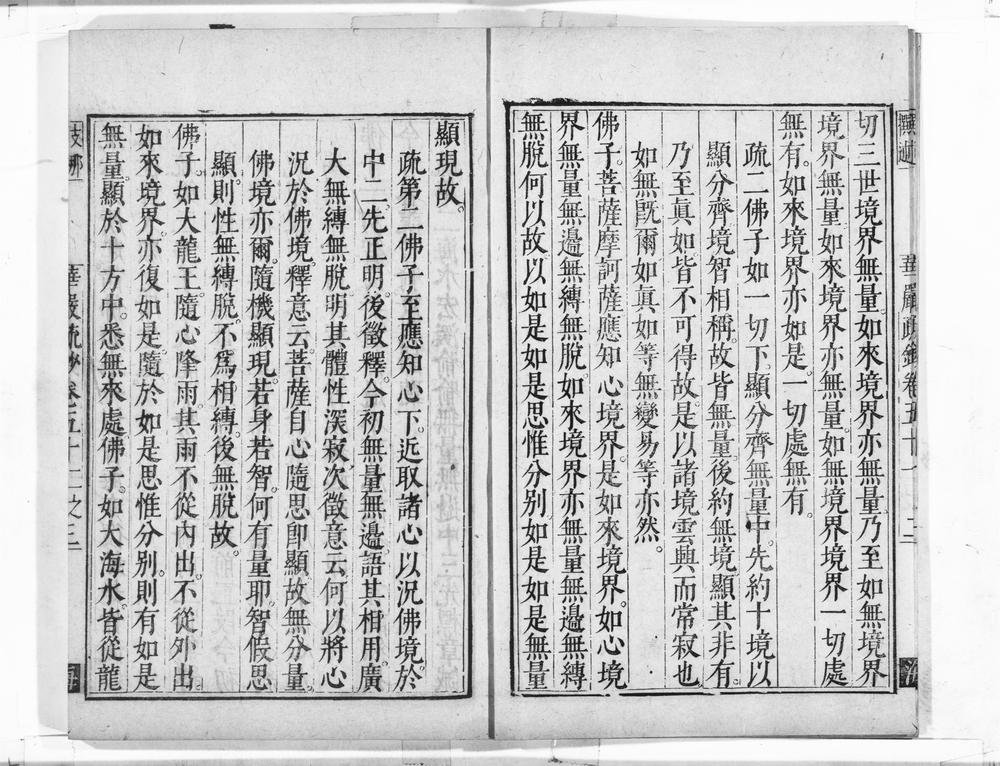 切三世境界無量。如來境界亦無量。乃至如無境界
境界無量。如來境界亦無量。如無境界境界一切處
無有。如來境界亦如是。一切處無有。
疏二佛子如一切下。顯分齊無量中。先約十境以
顯分齊境智相稱。故皆無量。後約無境。顯其非有。
乃至眞如皆不可得故。是以諸境雲興而常寂也
如無旣爾。如眞如等無變易等亦然。
佛子。菩薩摩訶薩應知心境界。是如來境界。如心境
界無量無邊無縛無脫。如來境界亦無量無邊無縛
無脫。何以故。以如是如是思惟分別。如是如是無量
顯現故。
疏第二佛子至應知心下。近取諸心以況佛境。於
中二。先正明。後徵釋。今初無量無邊。語其相用廣
大。無縛無脫。明其體性深寂。次徵意云。何以將心
況於佛境。釋意云。菩薩自心隨思卽顯。故無分量。
佛境亦爾。隨機顯現。若身若智。何有量耶。智假思
顯。則性無縛脫。不爲相縛。後無脫故。
佛子。如大龍王。隨心降雨。其雨不從內出。不從外出。
如來境界。亦復如是。隨於如是思惟分別。則有如是
無量顯於十方中。悉無來處。佛子。如大海水皆從龍
華嚴疏鈔卷五十二之三